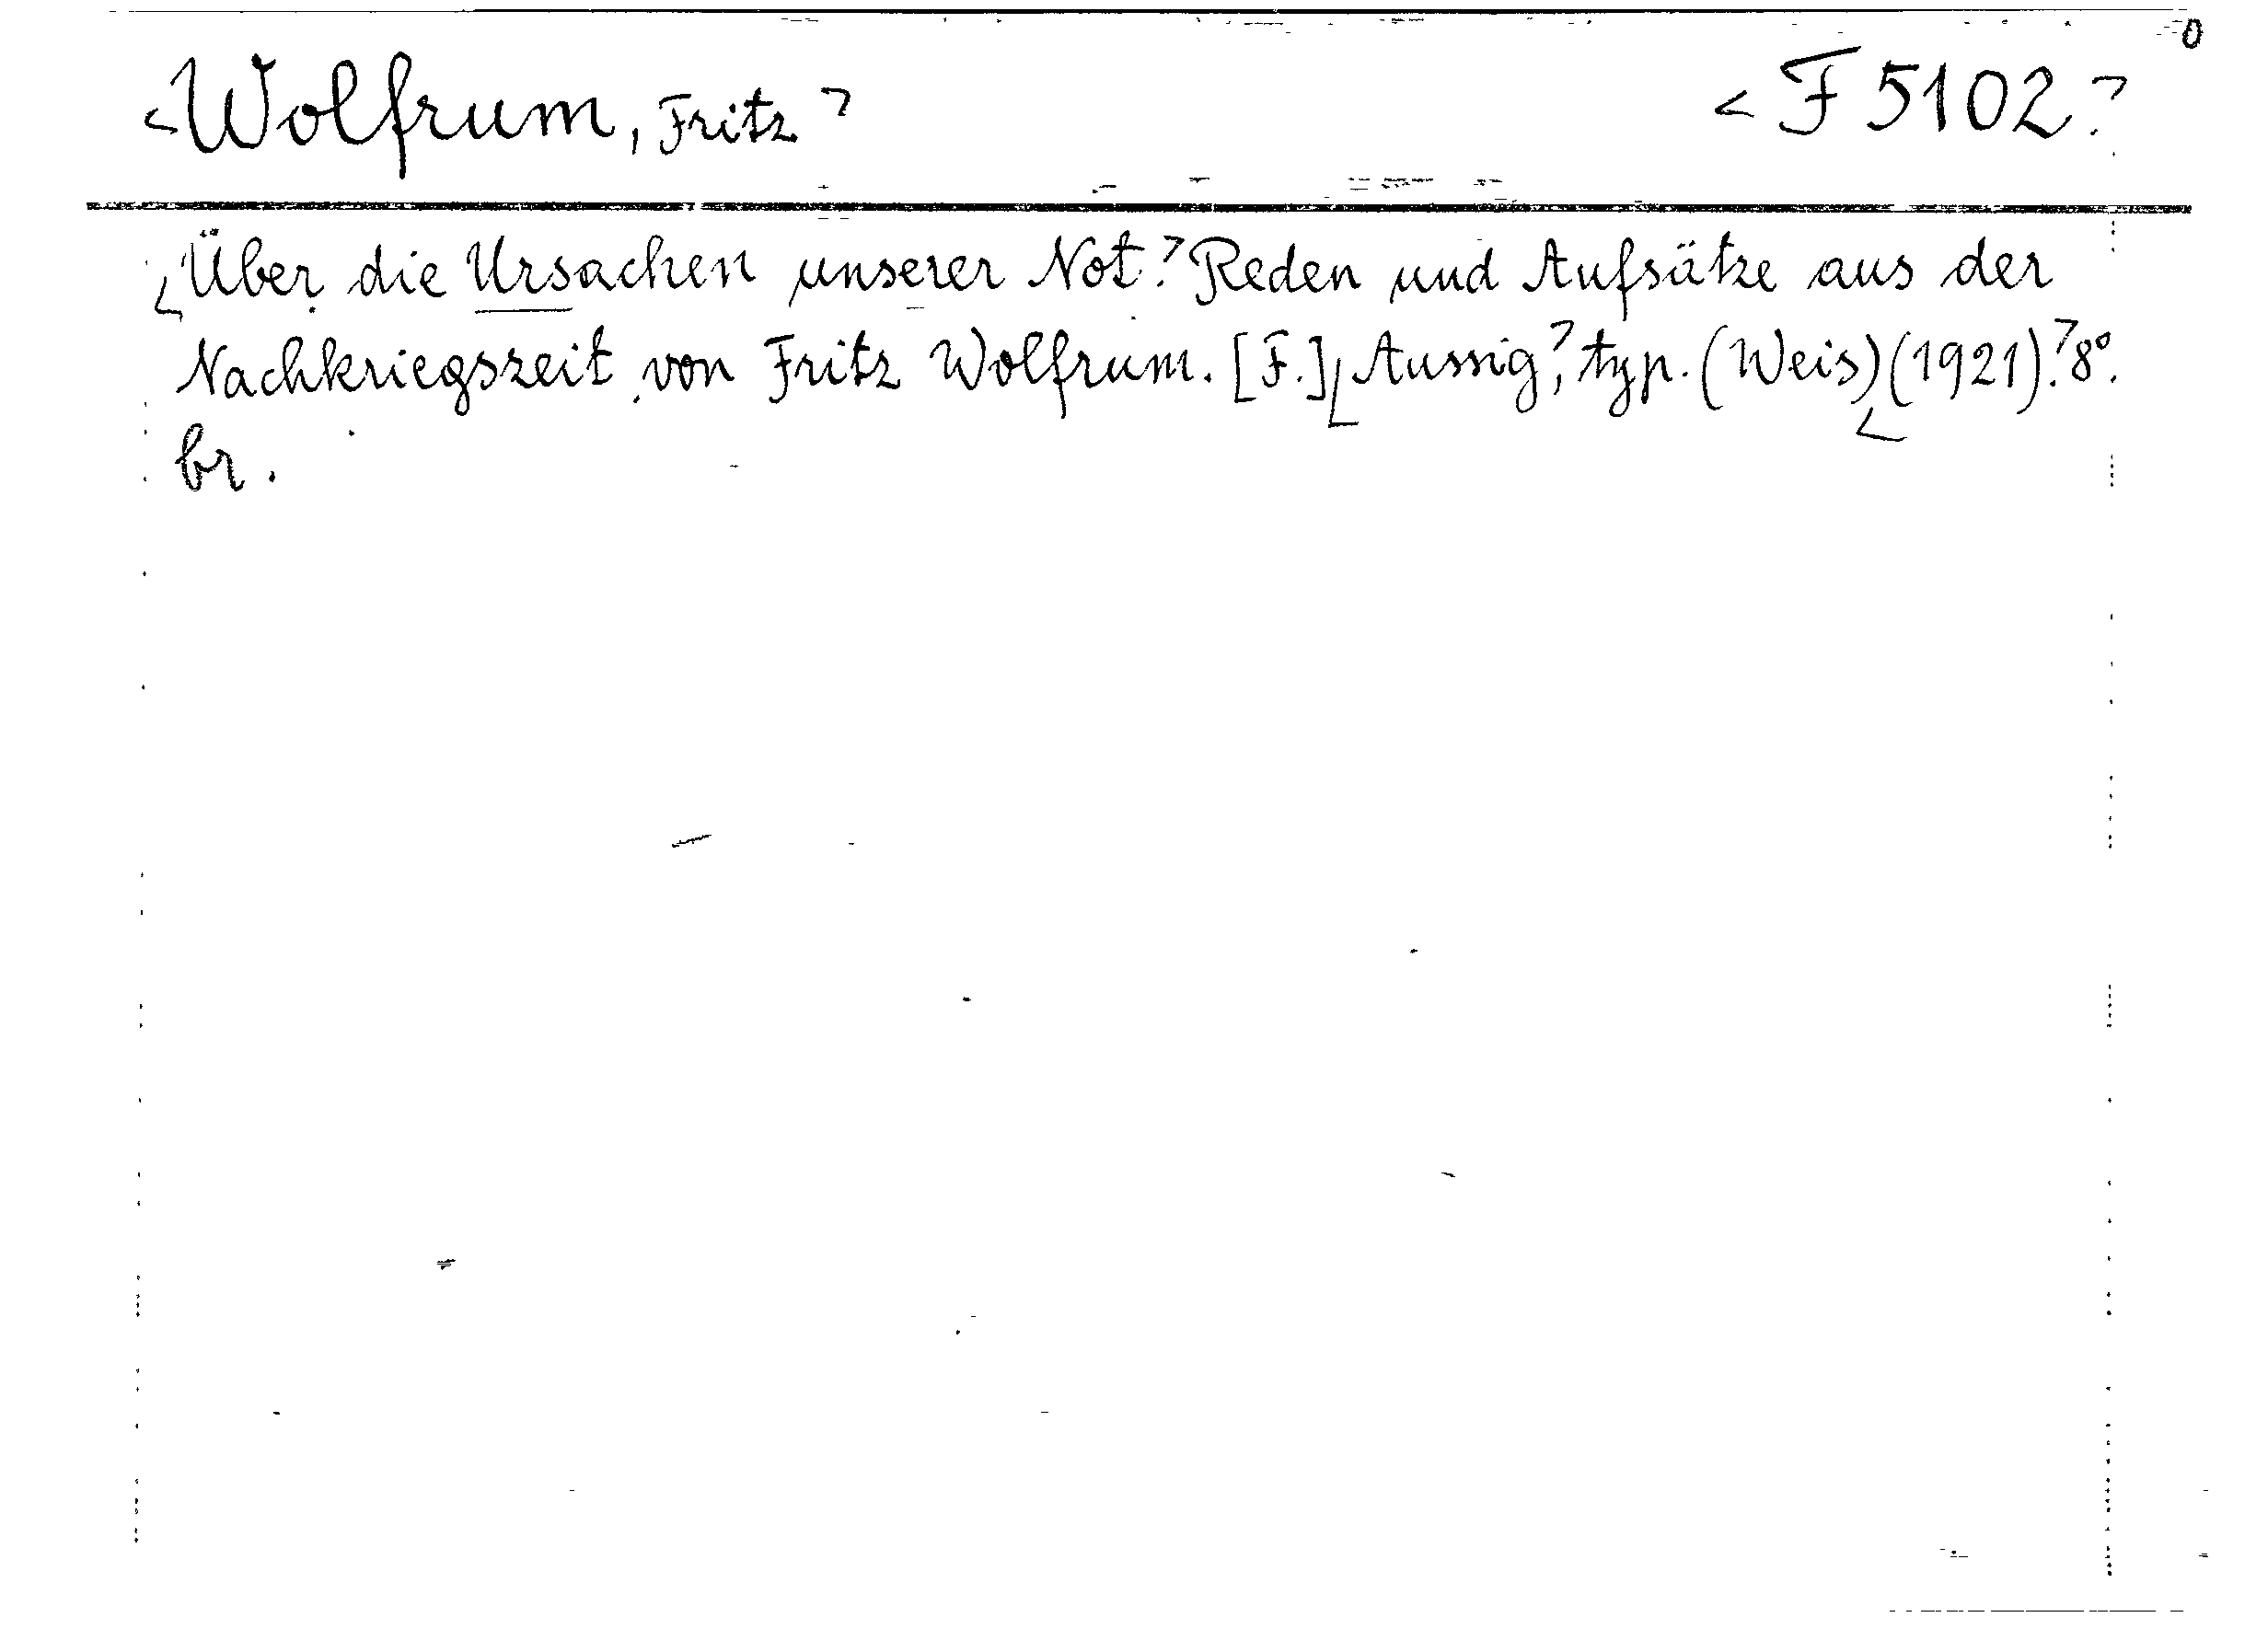 <Wolfrum, Fritz> <F 5102>
0
<Über die Ursachen unserer Not.> Reden und Aufsätze aus der
Nachkriegszeit von Fritz Wolfrum. [F.] <Aussig>, typ. (Weis) <(1921).> 8°.
br.